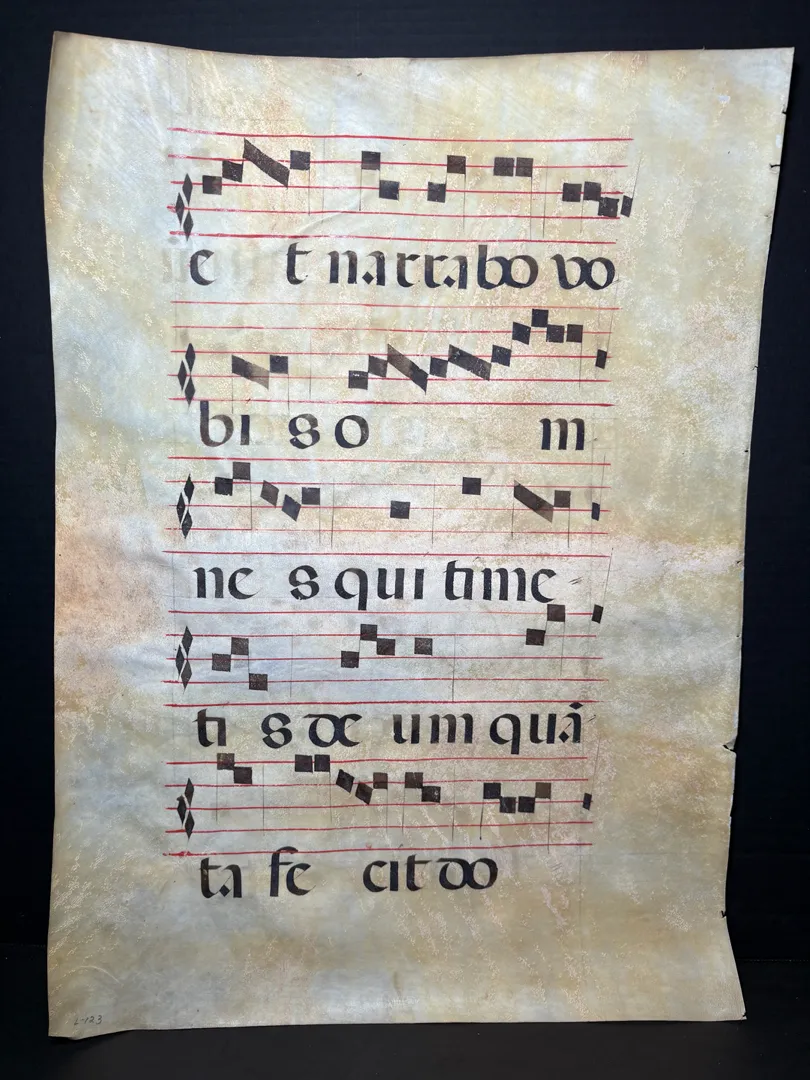 e t narrabo vo
bi s o m
ne s qui time
ti s de um quā
ta fe cit do
L-123